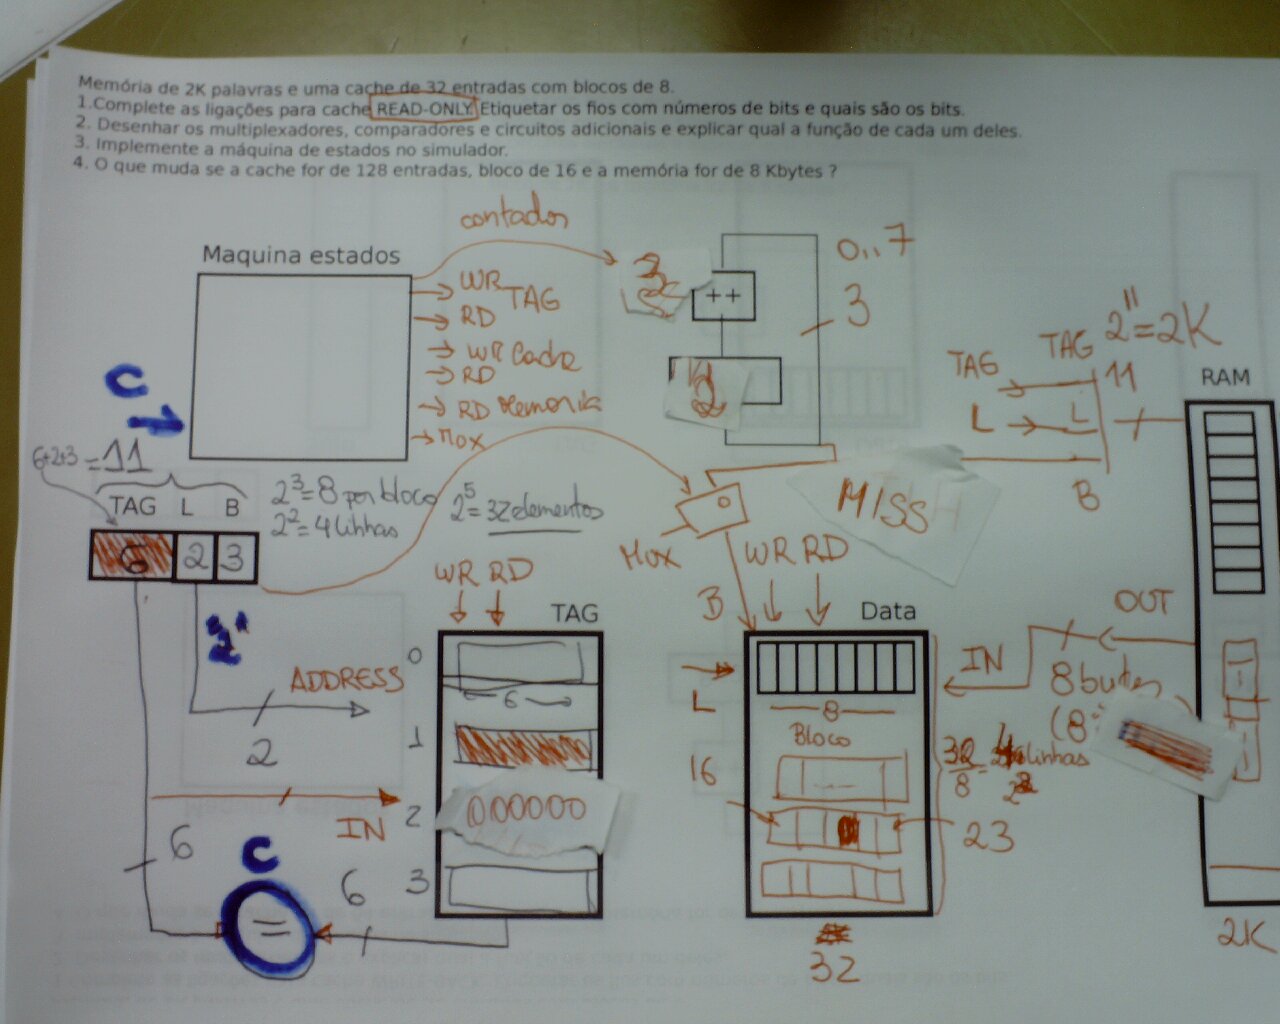 Memória de 2K palavras e uma cache de 32 entradas com blocos de 8.
1.Complete as ligações para cache READ-ONLY. Etiquetar os fios com números de bits e quais são os bits.
2. Desenhar os multiplexadores, comparadores e circuitos adicionais e explicar qual a função de cada um deles.
3. Implemente a máquina de estados no simulador.
4. O que muda se a cache for de 128 entradas, bloco de 16 e a memória for de 8 Kbytes ?
contador
Maquina estados
0..7
WR TAG
RD
++
3
WR Cache
RD
RD Memoria
Mox
2
TAG
TAG 2^11=2K
11
RAM
L
L
B
C
6+2+3=11
TAG L B
2^3=8 por bloco
2^2=4 linhas
2^5=32 elementos
MISS
6 2 3
Mox
WR RD
WR RD
TAG
B
Data
OUT
2
0
ADDRESS
6
2
L
IN
8
Bloco
32/8=4 linhas
1
16
000000
2
IN
23
6
C
=
6
3
32
2K